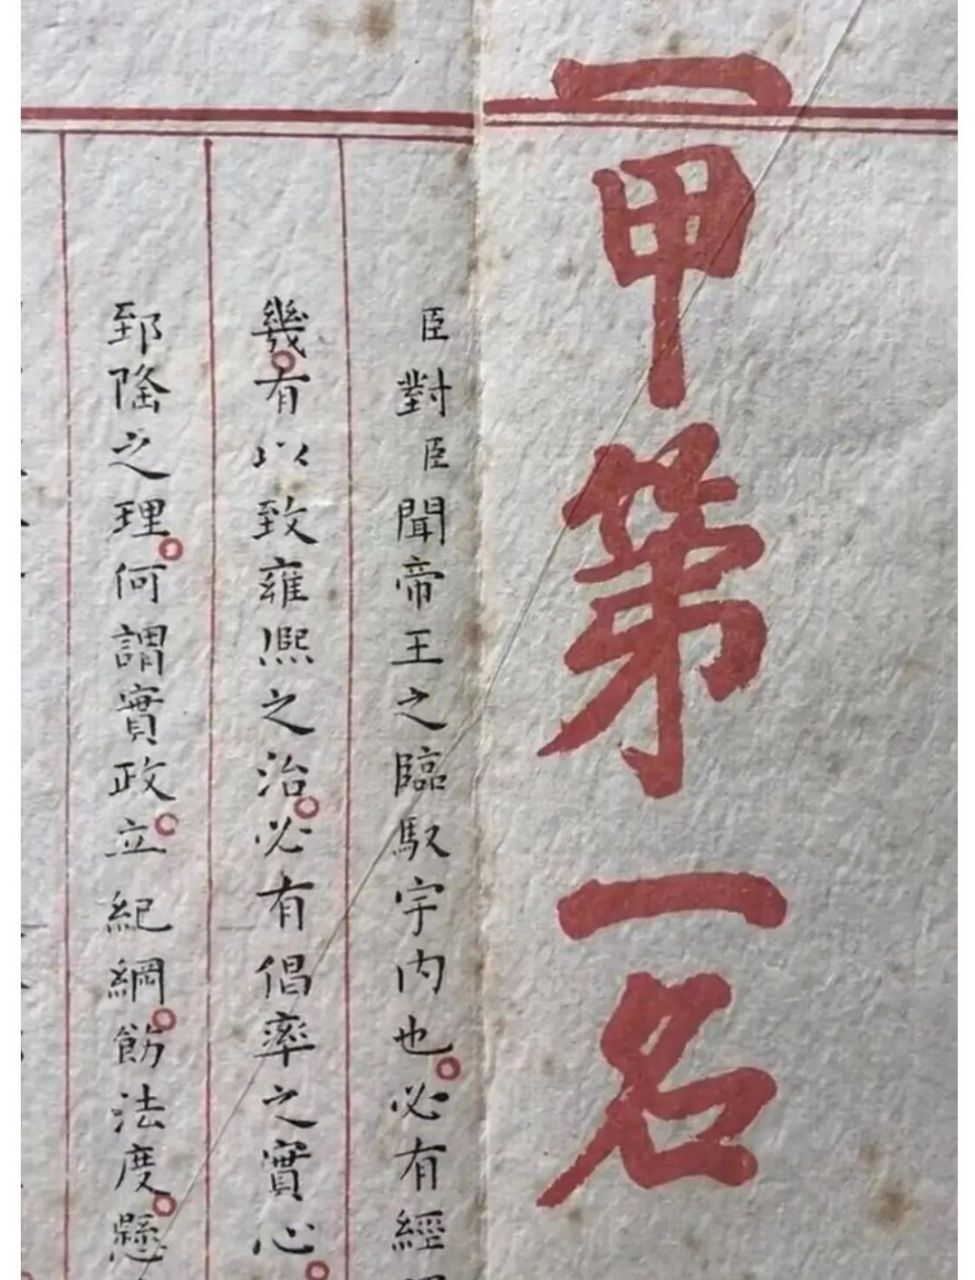 一甲第一名
臣對臣聞帝王之臨馭宇内也必有經
幾有以致雍熙之治必有倡率之實心
郅隆之理何謂實政立紀綱飭法度懸